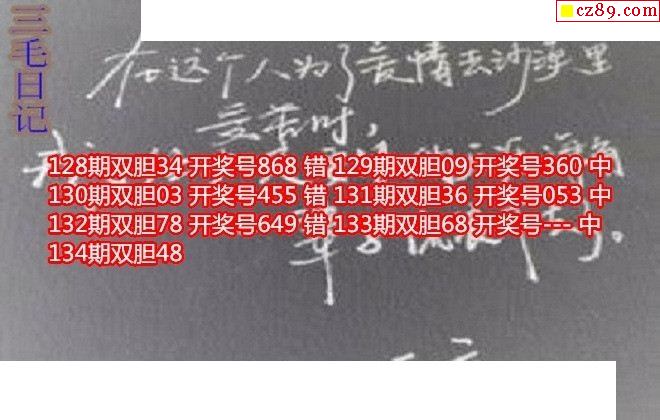 cz89.com
三毛日记
在这个人为了爱情去沙漠里
受苦时，
128期双胆34 开奖号868 错 129期双胆09 开奖号360 中
130期双胆03 开奖号455 错 131期双胆36 开奖号053 中
132期双胆78 开奖号649 错 133期双胆68 开奖号--- 中
134期双胆48